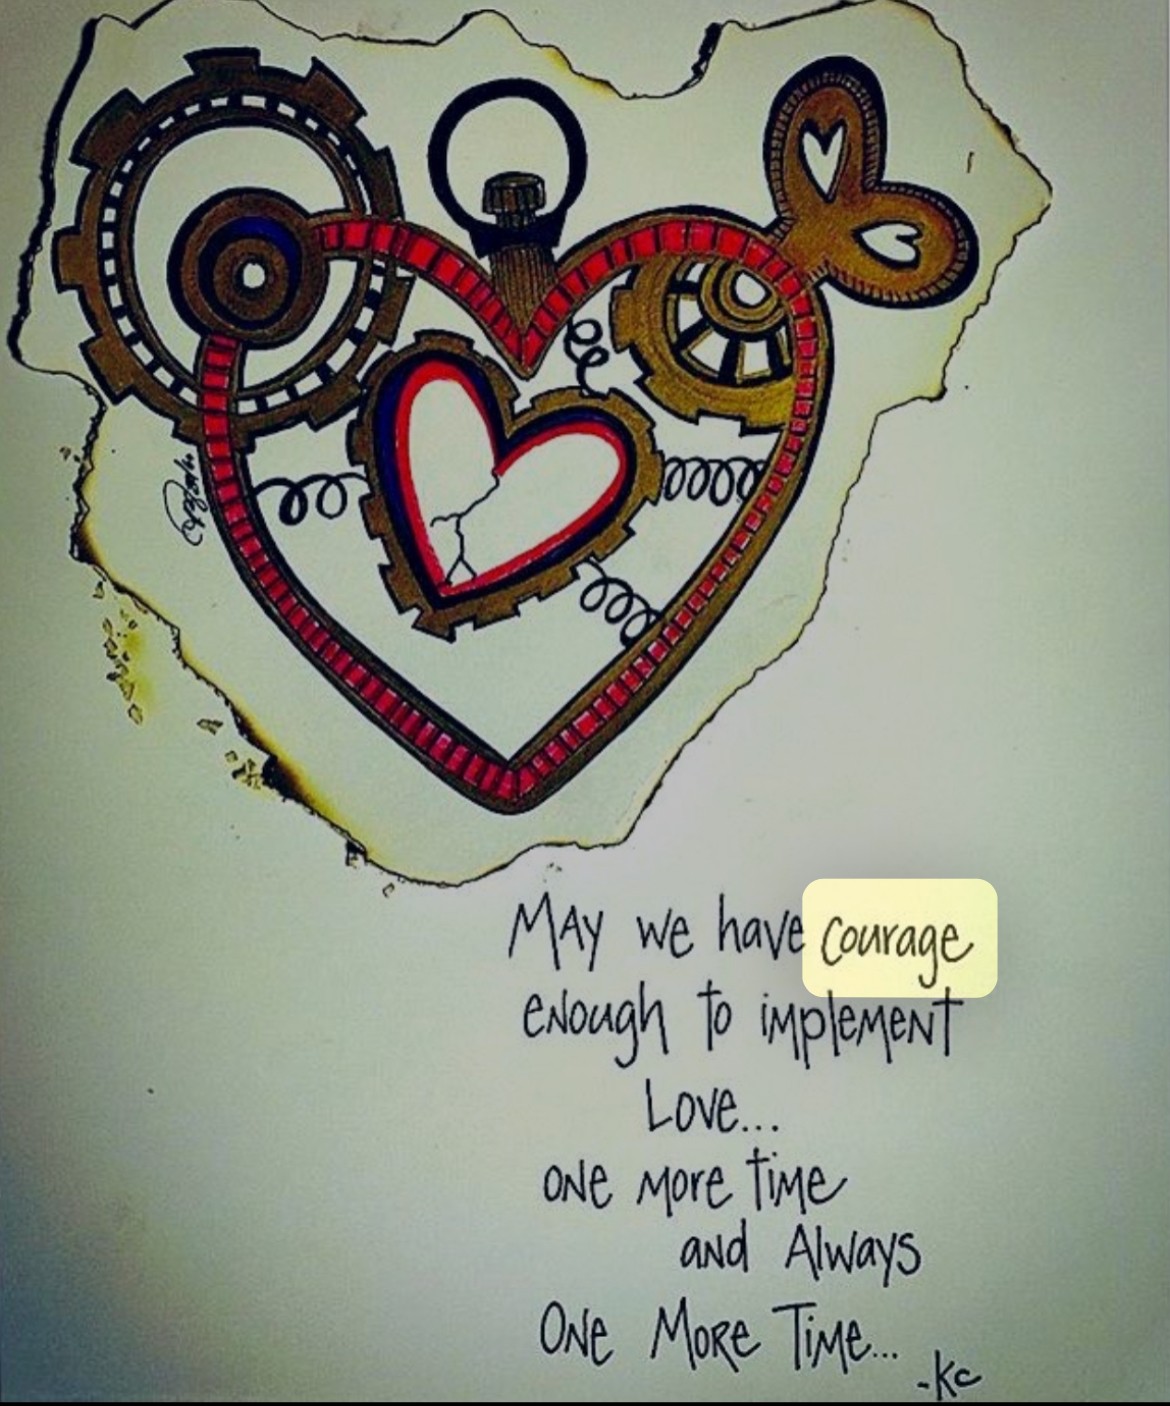 MAY we have courage
enough to implement
Love...
one more time
and Always
One More Time...
-Kc